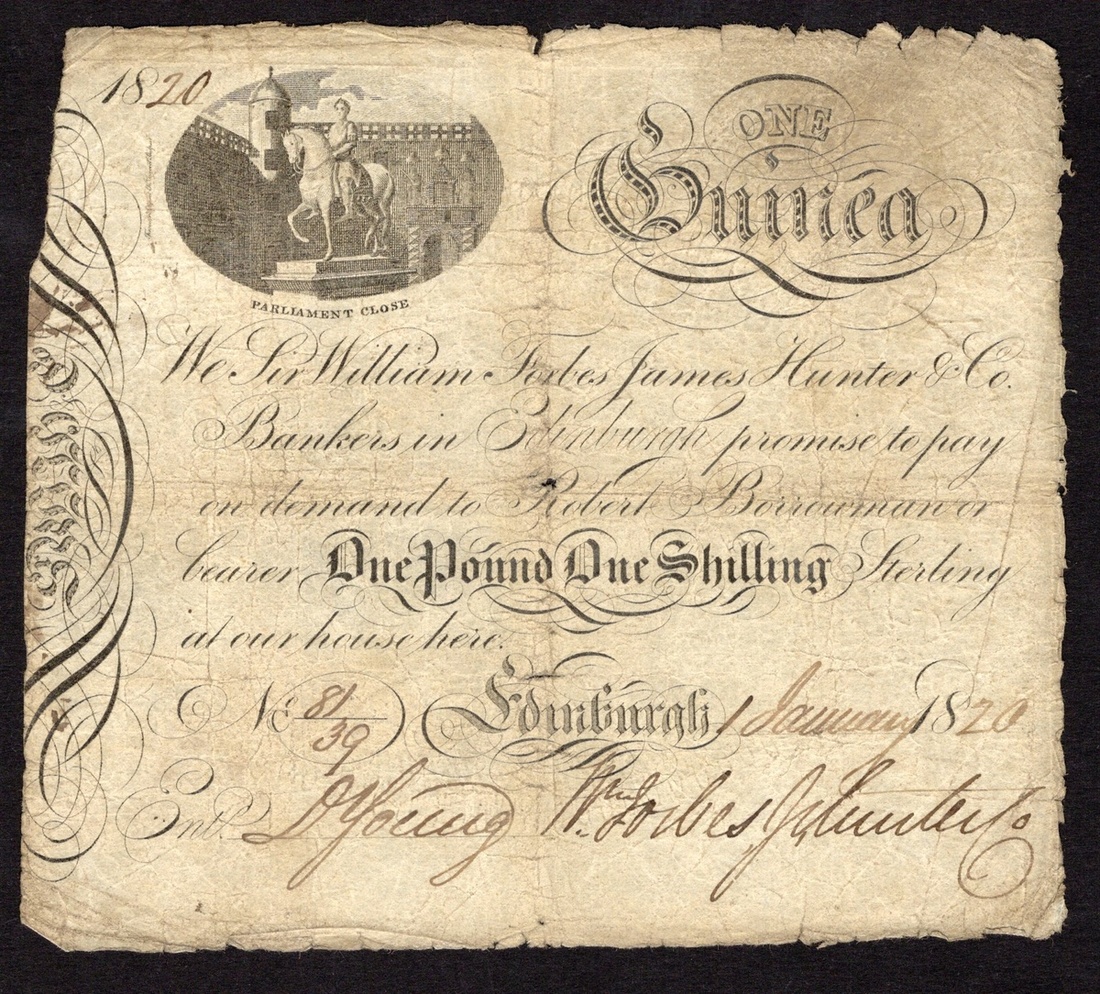 1820
ONE
Guinea
PARLIAMENT CLOSE
We Sir William Forbes James Hunter & Co.
Bankers in Edinburgh promise to pay
on demand to Robert Borrowman or
bearer One Pound One Shilling Sterling
at our house here.
No. 81/39 Edinburgh 1 January 1820
Entd. D Young Wm. Forbes J Hunter Co